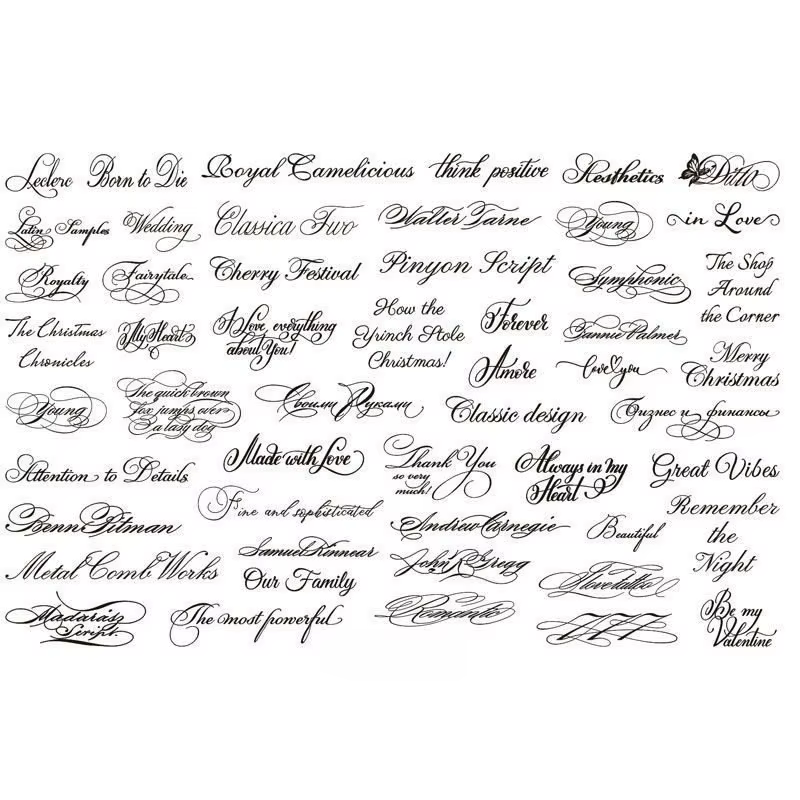 Leclerc
Born to Die
Royal Camelicious
think positive
Aesthetics
Ditto
Latin Samples
Wedding
Classica Two
Walter Tarne
Young
in Love
Royalty
Fairytale
Cherry Festival
Pinyon Script
Symphonic
The Shop
Around
the Corner
The Christmas
Chronicles
My Heart
I Love everything
about You!
How the
Yrinch Stole
Christmas!
Forever
Fannie Palmer
Amore
love you
Merry
Christmas
Young
The quick brown
fox jumps over
a lazy dog
Своими Руками
Classic design
Бизнес и финансы
Attention to Details
Made with Love
Thank You
so very
much!
Always in my
Heart
Great Vibes
Benn Pitman
Fine and sophisticated
Andrew Carnegie
Beautiful
Remember
the
Night
Metal Comb Works
Samuel Kinnear
Our Family
John R Gregg
I love tattoo
Madaras
Script.
The most powerful
Romantic
777
Be my
Valentine